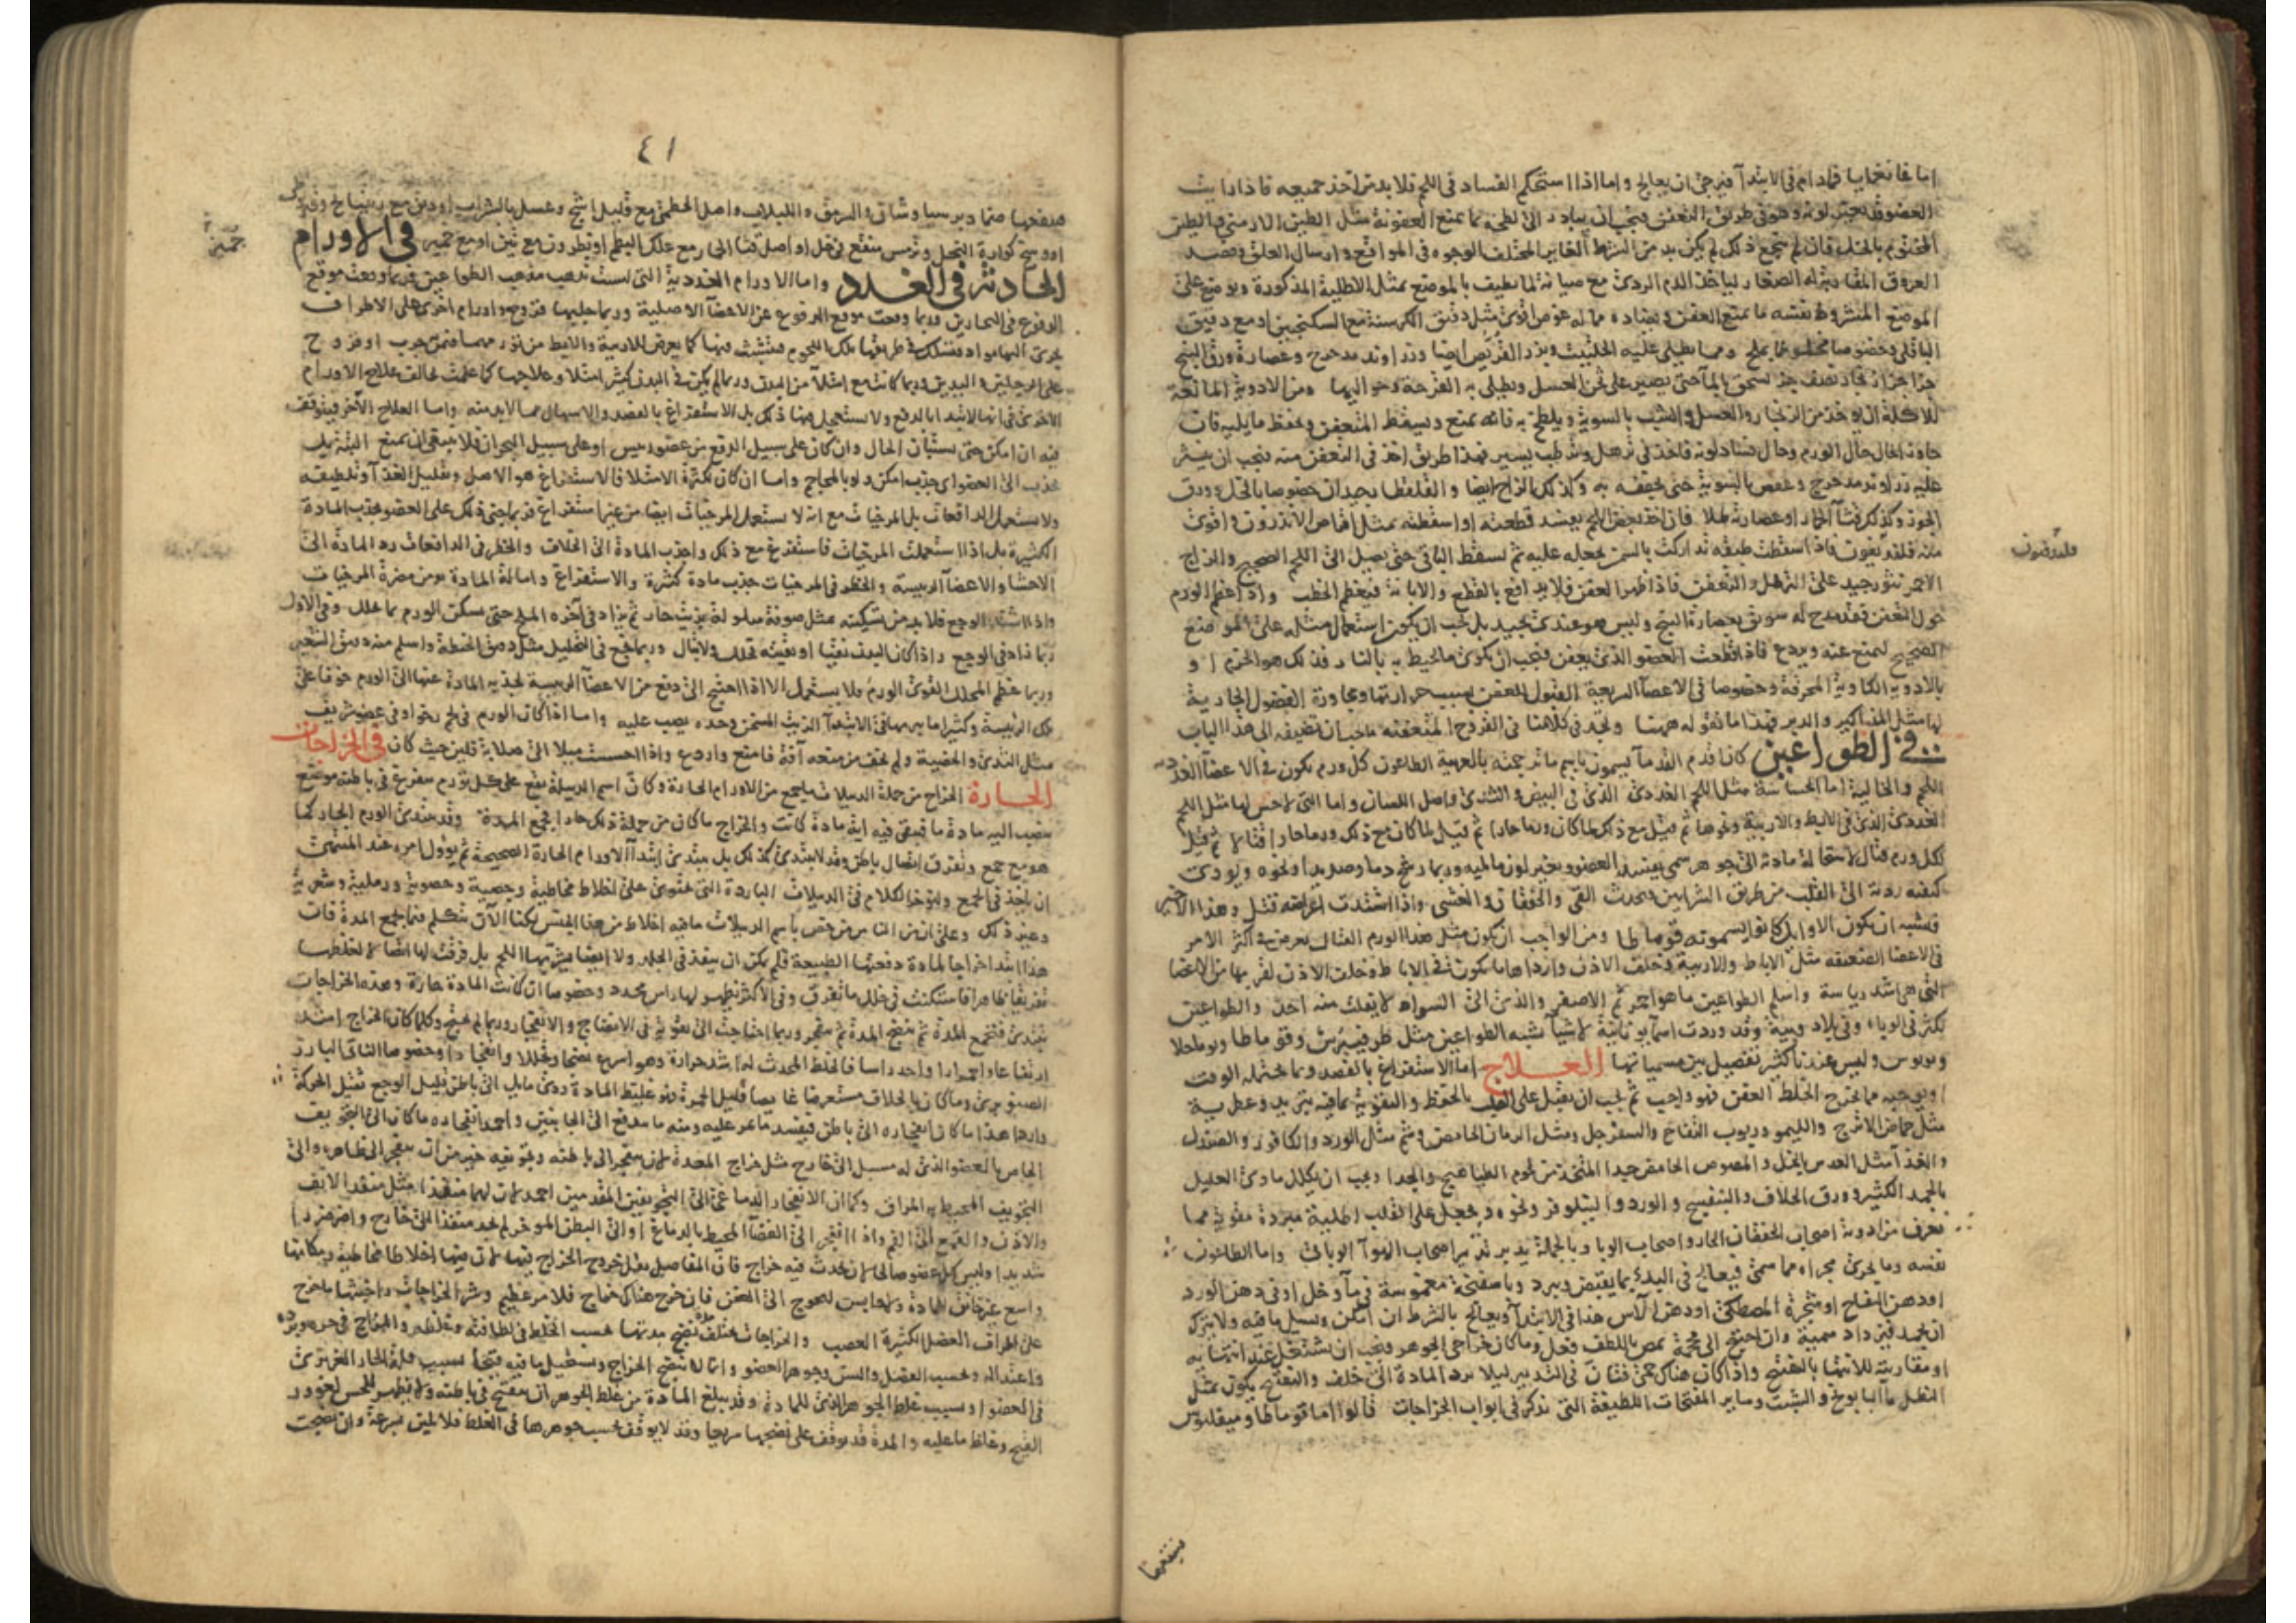 اما غانغرايا فما دام في الابتدآ فيرجى ان يعالج واما اذا استحكم الفساد في اللحم فلا بد من اخذ جميعه فاذا رايت
العضو قد تغير لونه وهو في طريق التعفن فيجب ان يبادر الى لطخه بما يمنع العفونة مثل الطين الارمني والطين
المختوم بالخل فان لم ينجع ذلك لم يكن بد من الشرط الغاير المختلف الوجوه في المواقع وارسال العلق وفصد
العروق المقاربة له الصغار لياخذ الدم الردئ مع صيانة لما يطيف بالموضع بمثل الاطلية المذكورة ويوضع على
الموضع المشروط نفسه ما يمنع العفن ويضاده مما له غوص اقوى مثل دقيق الكرسنة مع السكنجبين او مع دقيق
الباقلى وخصوصا مخلوطا بملح ومما يطلى عليه الحلتيت وبزر القريص ايضا وزراوند مدحرج وعصارة ورق
جزا جزا زنجار نصف جز يسحق بالمآ حتى يصير على ثخن العسل ويطلى به القرحة وحواليها ومن الادوية المانعة
للاكلة ان يوخذ من الزنجار والعسل والشب بالسوية ويلطخ به فانه يمنع ويسقط المتعفن ويحفظ ما يليه فان
جاوز الحال حال الورم وحال فساد لونه فاخذ في ترهل وترطب يسير فهذا طريق اخذ في التعفن منه فيجب ان ينثر
عليه زراوند مدحرج وعفص بالسوية حتى يجففه به وكذلك الزاج ايضا والقلقطا رجيدان خصوصا بالخل وورق
الجوز وكذلك قثآ الحمار وعصارته طلا فان اخذ بعض اللحم يفسد قطعته او اسقطته بمثل اقراص الاندرون واقوى
منه فلقديقون فاذا اسقطت طبقه تداركت بالسمن يجعله عليه ثم يسقط الباقي حتى يصل الى اللحم الصحيح والزاج
الاحمر نثور جيد على الترهل والتعفن فاذا ظهر العفن فلا يدافع بالقطع والابانة فيعظم الخطب واذا عظم الورم
حول العفن فقد مدح له سويق بعصارة البنج وليس هو عندي بجيد بل يجب ان يكون استعمال مثله على المواضع
الصحيح ليمنع عنه ويردع فاذا قطعت العضو الذي يعفن فيجب ان يكوى ما يحيط به بالنار فذلك هو الحزم او
بالادوية الكاوية المحرقة وخصوصا في الاعضآ السريعة القبول للعفن بسبب حرارتها ومجاورة الفضول الجارية
لها مثل المذاكير والدبر فهذا ما نقوله ههنا وتجد في كلامنا في القروح المتعفنة ما يجب ان تضيفه الى هذا الباب
في الطواعين كان اقدم القدمآ يسمون باسم ما ترجمته بالعربية الطاعون كل ورم يكون في الاعضآ الغددية
اللحم والخالية اما الحساسة مثل اللحم الغددي الذي في البيض والثدي واصل اللسان واما التي لا حس لها مثل اللحم
الغددي الذي في الابط والاربية ونحوها ثم قيل مع ذلك لما كان ورما حارا ثم قيل لما كان مع ذلك ورما حارا قتالا ثم قيل
لكل ورم قتال لاستحالة مادته الى جوهر سمي يفسد العضو ويغير لون ما يليه وربما رشح دما وصديدا ونحوه ويودي
كيفيه ردية الى القلب من طريق الشرايين فيحدث القى والخفقان والغشي واذا اشتدت اعراضه قتل وهذا الاخير
فيشبه ان يكون الاوايل كانوا يسمونه قوماطا ومن الواجب ان يكون مثل هذا الورم القتال يعرض في اكثر الامر
في الاعضا الضعيفه مثل الاباط والاربية وخلف الاذن وارداها ما يكون في الاباط وخلف الاذن لقربها من الاعضا
التي هي اشد رياسة واسلم الطواعين ما هو احمر ثم الاصفر والذي الى السواد لا يفلت منه احد والطواعين
تكثر في الوباء وفي بلاد وبية وقد وردت اسمآ يونانية لاشيآ تشبه الطواعين مثل
وبوبوس وليس عندنا كثير تفصيل بين مسمياتها العلاج اما الاستفراغ بالفصد وما يحتمله الوقت
او يوجبه مما يخرج الخلط العفن فهو واجب ثم يجب ان يقبل على القلب بالحفظ والتقوية بما فيه تبريد وعطرية
مثل حماض الاترج والليمو وربوب التفاح والسفرجل ومثل الرمان الحامض وشم مثل الورد والكافور والصندل
والغذآ مثل العدس بالخل والمصوص الحامض جيدا المتخذة من لحوم الطياهيج والجدا ويجب ان يكلل ماوى العليل
بالجمد الكثير وورق الخلاف والبنفسج والورد والنيلوفر ونحوه ويجعل على القلب اطلية مبردة مقوية مما
تعرف من ادوية اصحاب الخفقان الحار واصحاب الوبا وبالجملة يدبر تدبير اصحاب الهوآ الوبائي واما الطاعون
نفسه وما يجري مجراه مما سمي فيعالج في البدئ بما يقبض ويبرد وباسفنجة مغموسة في مآ وخل او في دهن الورد
او دهن التفاح او شجرة المصطكى او دهن الآس هذا في الابتدآ ويعالج بالشرط ان امكن ويسيل ما فيه ولا يترك
ان يجمد فيزداد سمية وان احتيج الى محجمة تمص باللطف فعل وما كان خراجي الجوهر فيجب ان يشتغل عند انتهائه
او مقاربته للانتها بالفتح واذا كان هناك حمى فتان في التدبير ليلا يرد المادة الى خلف والتفتيح يكون بمثل
النطل بما البابونج والشبت وساير المفتحات اللطيفة التي تذكر في ابواب الخراجات قالوا اما قوماطا وميقلانوس
فلقديقون
فينفعها
٤١
فينفعها ضماد برسياوشان والسرمق واللبلاب واصل الخطمي مع قليل اشج وعسل بالشراب او دبق مع ريتيانج وقيروطي
او وسخ كوارة النحل وترمس منقع في خل او اصل قثآ الحمار مع علك البطم او نطرون مع تين او مع خمير في الاورام
الحادثة في الغدد واما الاورام الغددية التي ليست تذهب مذهب الطواعين فربما وقعت موقع
الدفوع في البحارين وربما وقعت موقع الدفوع عن الاعضآ الاصلية وربما جلبها قروح واورام اخرى على الاطراف
يجري اليها مواد فتسلك في طريقها تلك اللحوم فتتشبث فيها كما يعرض للاربية والابط من تورمهما فمن جرب او قروح
على الرجلين واليدين وربما كانت مع امتلآ من البدن وربما لم يكن في البدن كثير امتلا وعلاجها كما علمت يخالف علاج الاورام
الاخرى في انها لا تبتدا بالدفع ولا يستعمل فيها ذلك بل الاستفراغ بالفصد والاسهال مما لا بد منه واما العلاج الآخر فيتوقف
فيه ان امكن حتى يستبان الحال وان كان على سبيل الدفع من عضو رييس او على سبيل البحران فلا ينبغي ان يمنع البتة بل
يجذب الى العضو اي جذب امكن ولو بالمحاجم واما ان كان لكثرة الامتلا فالاستفراغ هو الاصل وتقليل الغذآ وتلطيفه
ولا يستعمل الدافعات بل المرخيات مع انه لا يستعمل المرخيات ايضا من غير استفراغ فربما جنى ذلك على العضو بجذب المادة
الكثيرة بل اذا استعملت المرخيات فاستفرغ مع ذلك واجذب المادة الى الخلاف والخطر في الدافعات رد المادة الى
الاحشا والاعضآ الرييسية والخطر في المرخيات جذب مادة كثيرة والاستفراغ وامالة المادة يومن مضرة المرخيات
واذا اشتد الوجع فلا بد من تسكينه بمثل صوفة مبلولة بزيت حار ثم يزاد في آخره الملح حتى يسكن الورم بما يحلل وفي الاول
ربما زاد في الوجع واذا كان البدن نقيا او نقيته فحلل ولا تبال وربما نجع في التحليل مثل دقيق الحنطة واسلم منه دقيق الشعير
وربما عظم المحلل القوي الورم فلا يستعمل الا اذا احتيج الى دفع من الاعضآ الرييسة لجذبه المادة عنها الى الورم خوفا على
تلك الرئيسة وكثيرا ما يبريها في الابتدآ الزيت المسخن وحده يصب عليه واما اذا كان الورم في لحم رخو او في عضو شريف
مثل الثدي والخصية ولم يخف من منعه آفة فامنع واردع واذا احسست ميلا الى صلابة فلين حيث كان في الخراجات
الحارة الخراج من جملة الدبيلات ما يجمع من الاورام الحارة وكان اسم الدبيلة يقع على كل تورم يتفرغ في باطنه موضع
ينصب اليه مادة ما فتبقى فيه اية مادة كانت والخراج ما كان من جملة ذلك حارا يجمع المدة وقد يبتدئ الورم الحار كما
هو مع جمع وتفرق اتصال باطن وقد لا يبتدئ كذلك بل يبتدئ ابتدآ الاورام الحارة الصحيحة ثم يؤول امره عند المنتهى
ان ياخذ في الجمع ولنؤخر الكلام في الدبيلات الباردة التي تحتوي على اخلاط مخاطية وجصية وحصوية ورملية وشعرية
وغير ذلك وعلى ان من الناس من خص باسم الدبيلات ما فيه اخلاط من هذا الجنس لكنا الآن نتكلم فيما يجمع المدة فان
هذا ابتدا خراجا لمادة دفعتها الطبيعة فلم يمكن ان ينفذ في الجلد ولا ايضا يشربها اللحم بل فرقت لها اتصالا لغلظها
تفريقا ظاهرا فاستكنت في خلل ما تفرق وفي الاكثر يظهر لها راس محدد وخصوصا ان كانت المادة حارة وهذه الخراجات
تبتدئ فتجمع المدة ثم ينضج المدة ثم ينفجر وربما احتاجت الى تقوية في الانضاج والانفجار وربما لم تحتج وكلما كان الخراج اشد
ارتفاعا واحمرارا واحد راسا فالخلط المحدث له اشد حرارة وهو اسرع نضجا وتحللا وانفجارا وخصوصا الناتئ البارز
الصنوبري وما كان بالخلاف مستعرضا غايصا قليل الحمرة فهو غليظ المادة ردئ مايل الى باطن قليل الوجع ثقيل الحركة
واردا هذا ما كان انفجاره الى باطن فيفسد ما يمر عليه ومنه ما يندفع الى الجانبين واحمد انفجاره ما كان الى التجويف
الخاص بالعضو الذي له مسيل الى خارج مثل خراج المعدة لان ينفجر الى باطنه وتجويفه خير من ان ينفجر الى ظاهره والى
التجويف المحيط به المراق وكما ان الانفجار الدماغي الى التجويفين المقدمين احمد لان لهما منفذا مثل منفذ الانف
والاذن والفم الى الفم واذا انفجر الى الفضآ المحيط بالدماغ او الى البطن الموخر لم يجد منفذا الى خارج واضر ضررا
شديدا وليس كل عضو صالحا لان يحدث فيه خراج فان المفاصل يقل خروج الخراج فيها لان فيها اخلاطا مخاطية ومكانها
واسع غير خانق للمادة ولا حابس لمحوج الى العفن فان خرج هناك خراج فلامر عظيم وشر الخراجات واخبثها ما خرج
على اطراف العضل الكثيرة العصب والخراجات مختلف نضج مدتها بحسب الخلط في لطافته وغلظه والمزاج في حره وبرده
واعتداله وبحسب الفصل والسن وجوهر العضو وانما لا ينضج الخراج ويستحيل ما فيه قيحا بسبب قلة الحار الغريزي
في العضو او بسبب غلظ الجوهر الذي للمادة وقد يبلغ المادة من غلظ الجوهر ان يتقيح في باطنه ولا يظهر للحس لغور
القيح وغلظ ما عليه والمدة قد يوقف على نضجها سريعا وقد لا يوقف بحسب جوهرها في الغلظ فلا يلين بسرعة وان نضجت
خمير